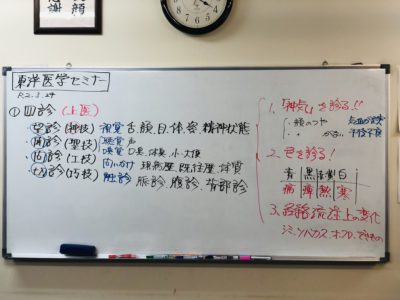 感謝
東洋医学セミナー
R2.3.29
① 四診 (上医)
望診 (神技) 視覚 舌、顔、目、体、姿、精神状態
聞診 (聖技) 聴覚 声
嗅覚 口臭、体臭、小・大便
問診 (工技) 問いかけ 現病歴、既往歴、体質
切診 (巧技) 触診 脈診、腹診、背部診
1. 「神気」を診る!!
・顔のつや
2. 色を診る!
青 黒 赤 黄 白
痛 痺 熱 寒
3. 経絡流注上の変化
シミ、ソバカス、ホクロ、できもの